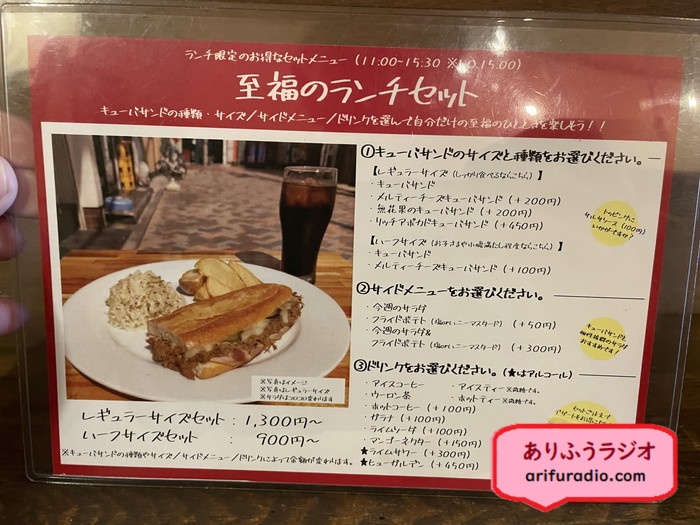 ランチ限定のお得なセットメニュー (11:00-15:30 ※L.O.15:00)
至福のランチセット
キューバサンドの種類・サイズ/サイドメニュー/ドリンクを選んで自分だけの至福のひとときを楽しもう!!
①キューバサンドのサイズと種類をお選びください。
【レギュラーサイズ(しっかり食べるならこちら)】
・キューバサンド
・メルティーチーズキューバサンド (+200円)
・無花果のキューバサンド (+200円)
・リッチアボカドキューバサンド (+450円)
トッピングに
サルサソース(100円)
いかがですか?
【ハーフサイズ(お子さまや小腹満たし程度ならこちら)】
・キューバサンド
・メルティーチーズキューバサンド (+100円)
②サイドメニューをお選びください。
・今週のサラダ
・フライドポテト(塩orハニーマスタード) (+50円)
・今週のサラダ&
フライドポテト(塩orハニーマスタード) (+300円)
キューバサンドと
相性抜群のサラダ
おすすめです
③ドリンクをお選びください。(★はアルコール)
・アイスコーヒー ・アイスティー※無糖です。
・ウーロン茶 ・ホットティー※無糖です。
・ホットコーヒー (+100円)
・ガラナ (+100円)
・ライムソーダ (+100円)
・マンゴーネクター (+150円)
★ライムサワー (+300円)
★ヒューガルデン (+450円)
セットごはんで
※写真はイメージ
※写真はレギュラーサイズ
※サラダはコロコロ変わります
レギュラーサイズセット:1,300円~
ハーフサイズセット : 900円~
※キューバサンドの種類やサイズ/サイドメニュー/ドリンクによって金額が変わります。
ありふうラジオ
arifuradio.com